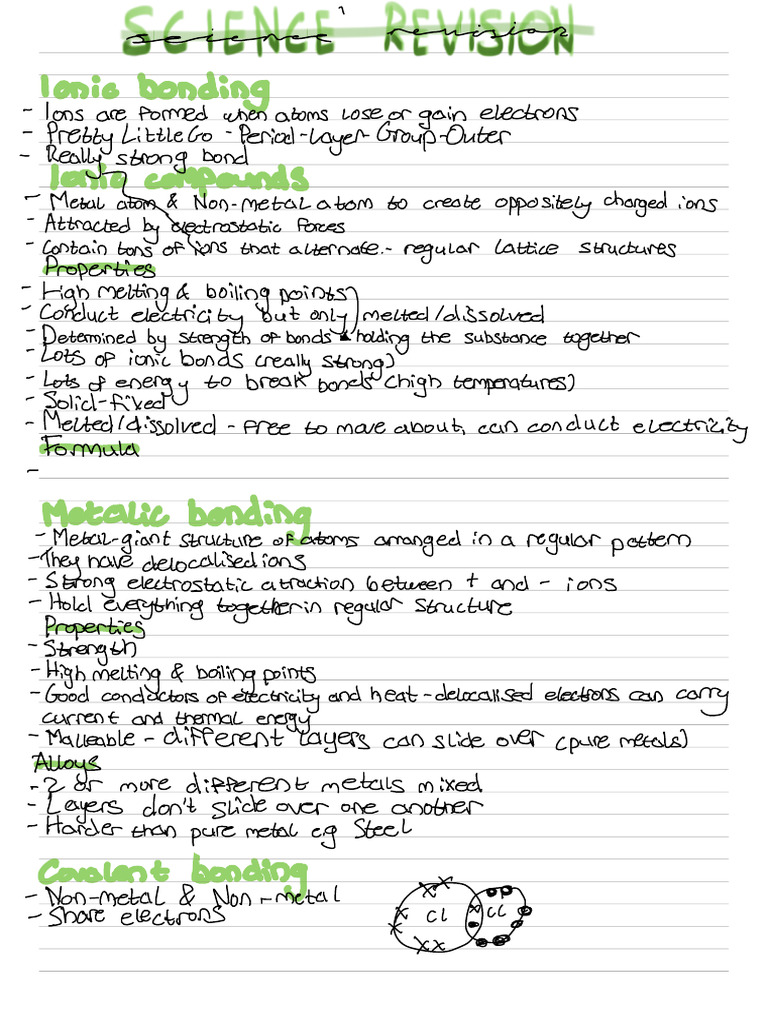 SCIENCE REVISION
science revision
Ionic bonding
- Ions are formed when atoms lose or gain electrons
- Pretty Little Go - Period-Layer-Group-Outer
- Really strong bond
Ionic compounds
- Metal atom & Non-metal atom to create oppositely charged ions
- Attracted by electrostatic forces
- Contain tons of ions that alternate - regular lattice structures
Properties
- High melting & boiling points
- Conduct electricity but only melted/dissolved
- Determined by strength of bonds holding the substance together
- Lots of ionic bonds (really strong)
- Lots of energy to break bonds (high temperatures)
- Solid-fixed
- Melted/dissolved - free to move about, can conduct electricity
Formula
-
Metalic bonding
- Metal-giant structure of atoms arranged in a regular pattern
- They have delocalised ions
- Strong electrostatic atraction between + and - ions
- Hold everything together in regular structure
Properties
- Strength
- High melting & boiling points
- Good conductors of electricity and heat - delocalised electrons can carry
current and thermal energy
- Malleable - different layers can slide over (pure metals)
Alloys
- 2 or more different metals mixed
- Layers don't slide over one another
- Harder than pure metal e.g Steel
Covalent bonding
- Non-metal & Non-metal
- Share electrons
Cl Cl